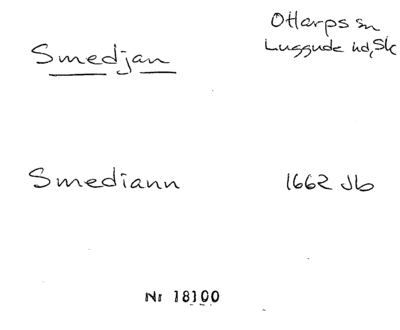 Smedjan
Ottarps sn
Luggude hd, Sk
Smediann
1662 Jb
Nr 18100